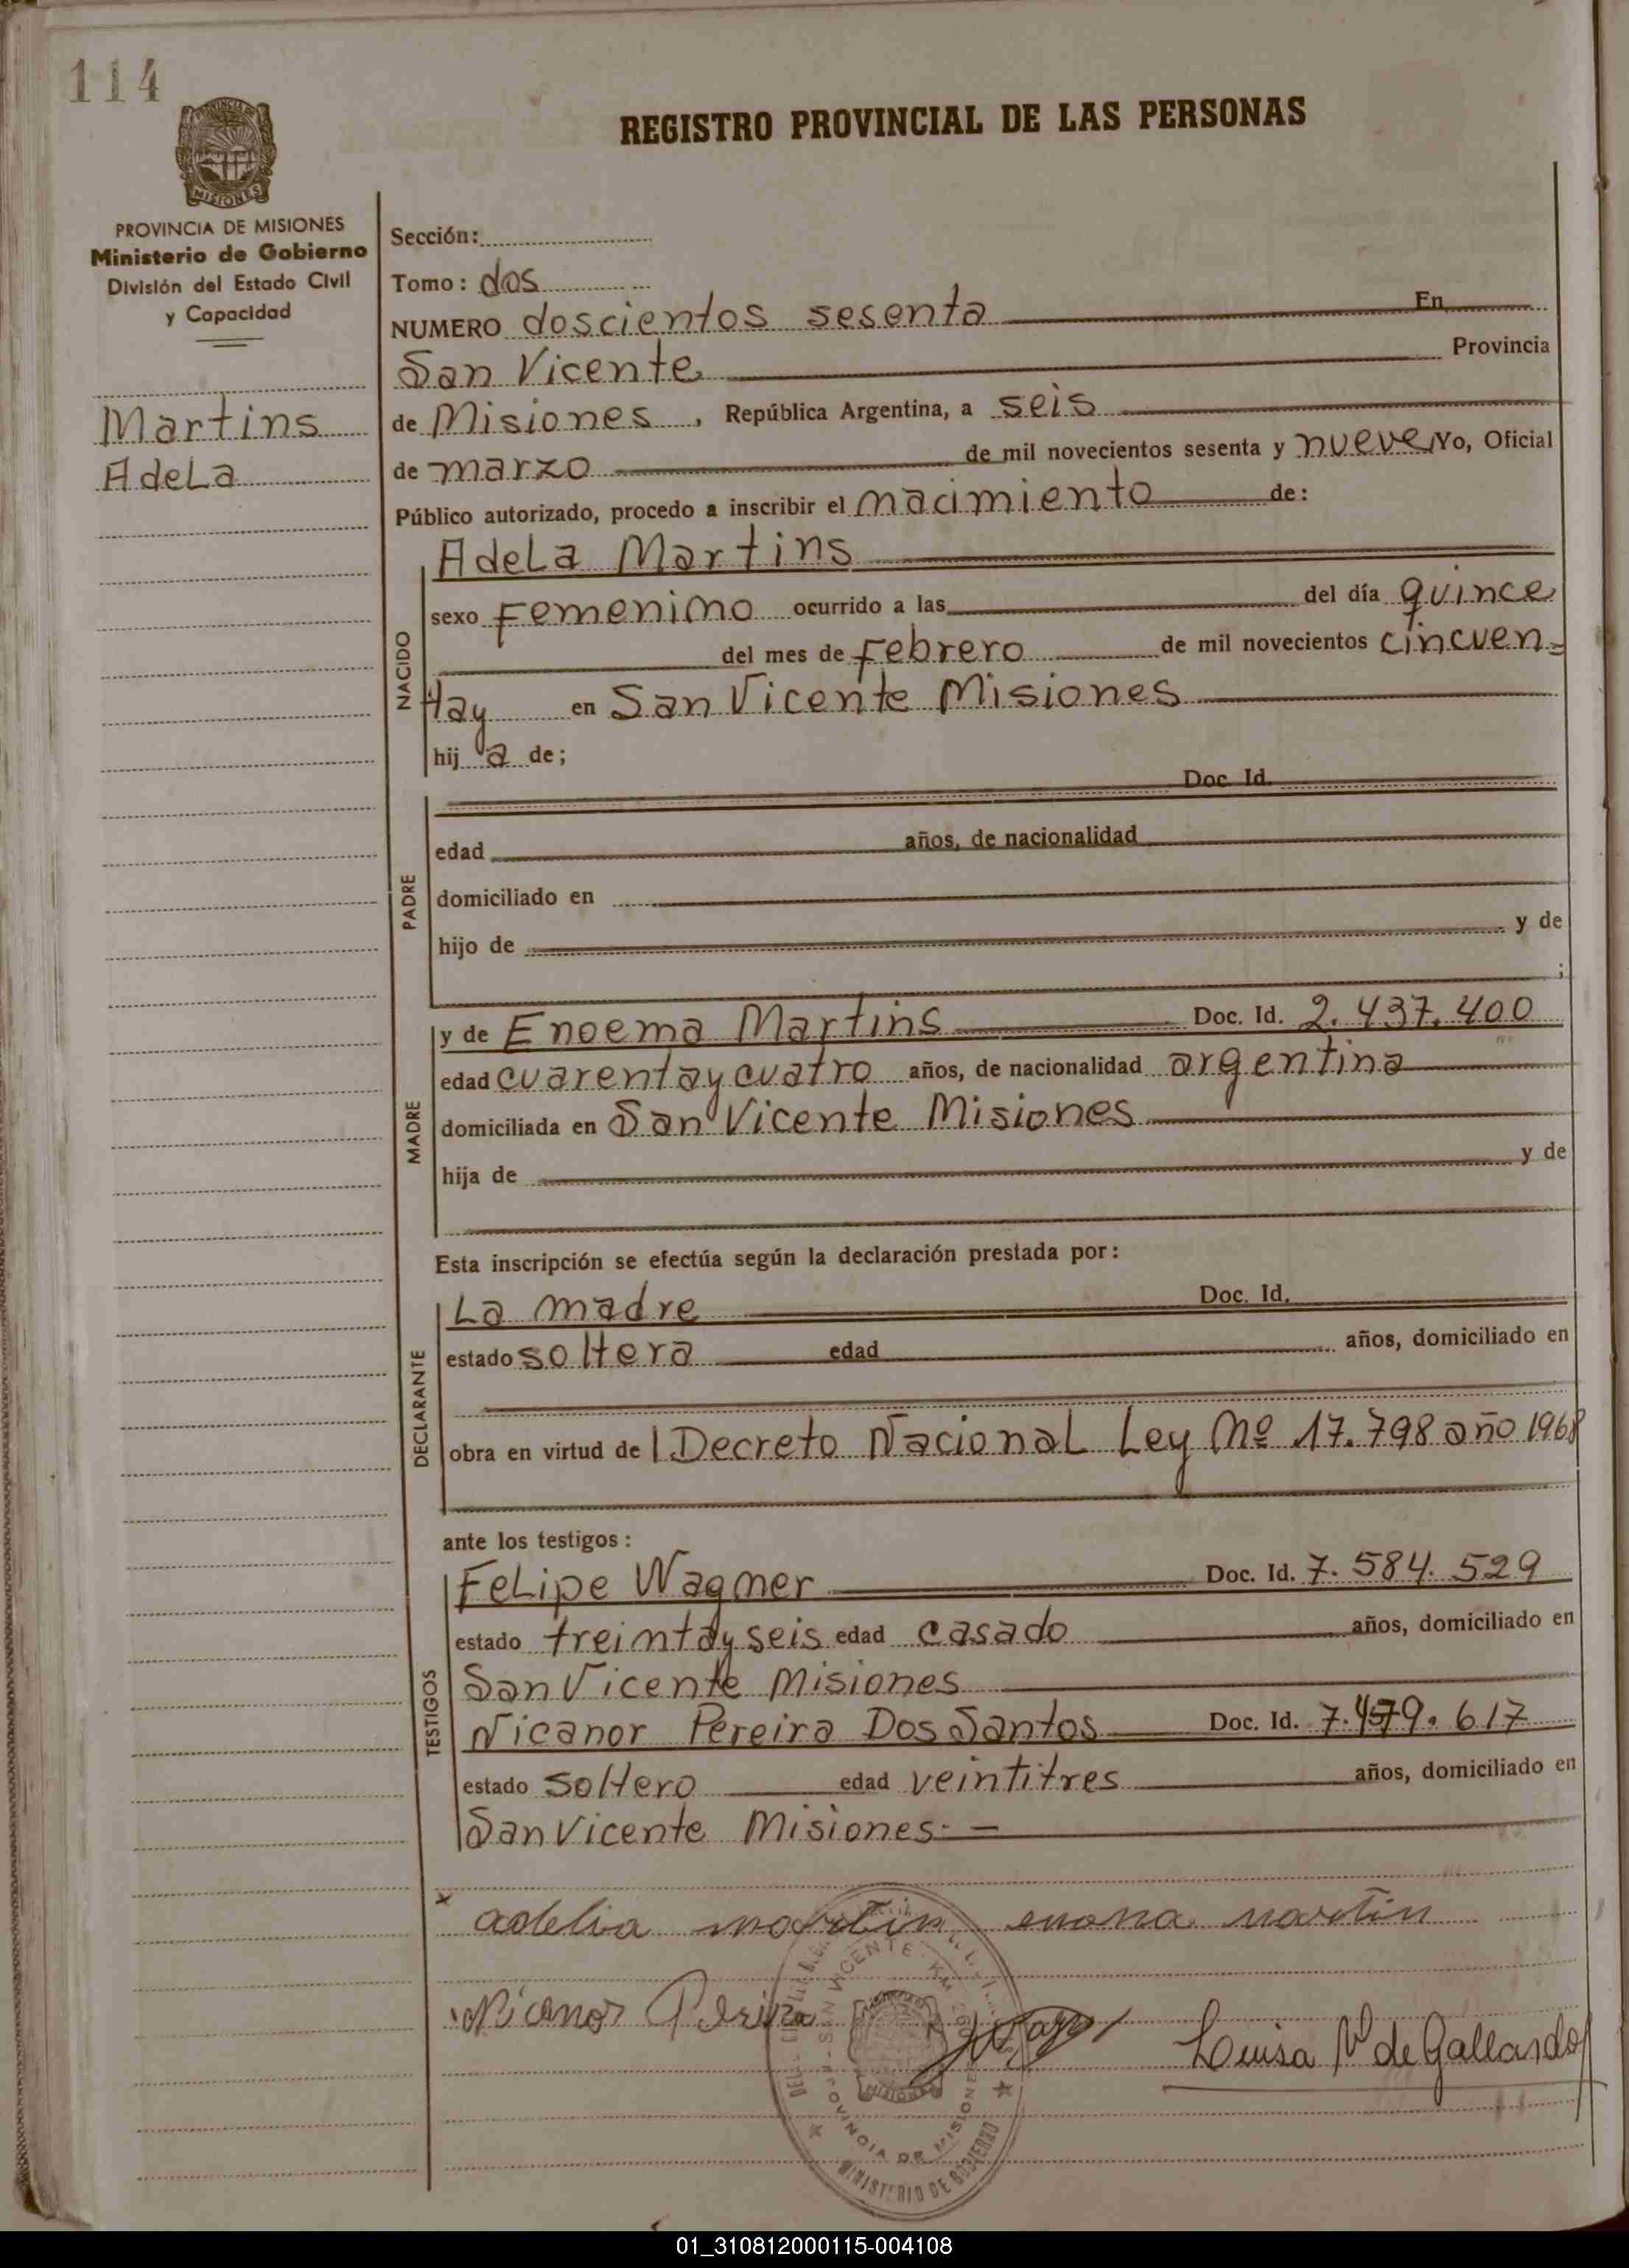 114
REGISTRO PROVINCIAL DE LAS PERSONAS
PROVINCIA DE MISIONES
Ministerio de Gobierno
División del Estado Civil
y Capacidad
Martins
Adela
Sección:
Tomo: dos
NUMERO doscientos sesenta En
San Vicente Provincia
de Misiones, República Argentina, a seis
de marzo de mil novecientos sesenta y nueve, Yo, Oficial
Público autorizado, procedo a inscribir el nacimiento de:
NACIDO
Adela Martins
sexo Femenino ocurrido a las del día quince
del mes de Febrero de mil novecientos cincuen=
tay en San Vicente Misiones
hij a de;
PADRE
Doc. Id.
edad años, de nacionalidad
domiciliado en
hijo de y de
;
MADRE
y de Enoema Martins Doc. Id. 2.437.400
edad cuarentay cuatro años, de nacionalidad argentina
domiciliada en San Vicente Misiones
hija de y de
Esta inscripción se efectúa según la declaración prestada por:
DECLARANTE
La madre Doc. Id.
estado soltera edad años, domiciliado en
obra en virtud de Decreto Nacional Ley Nº 17.798 año 1968
ante los testigos:
TESTIGOS
Felipe Wagner Doc. Id. 7.584.529
estado treintay seis edad casado años, domiciliado en
San Vicente Misiones
Nicanor Pereira Dos Santos Doc. Id. 7.479.617
estado soltero edad veintitres años, domiciliado en
San Vicente Misiones. —
x
adelia martin enona martin
Nicanor Pereira
Luisa V de Gallardo
SAN VICENTE
PROVINCIA DE MISIONES
MINISTERIO DE GOBIERNO
01_310812000115-004108